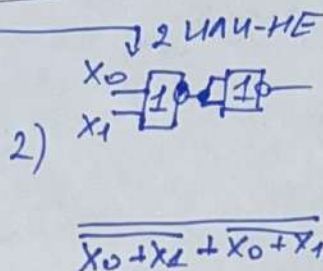 2 ИЛИ-НЕ
X₀ 1 1
X₁
2)
X₀+X₁ + X₀+X₁